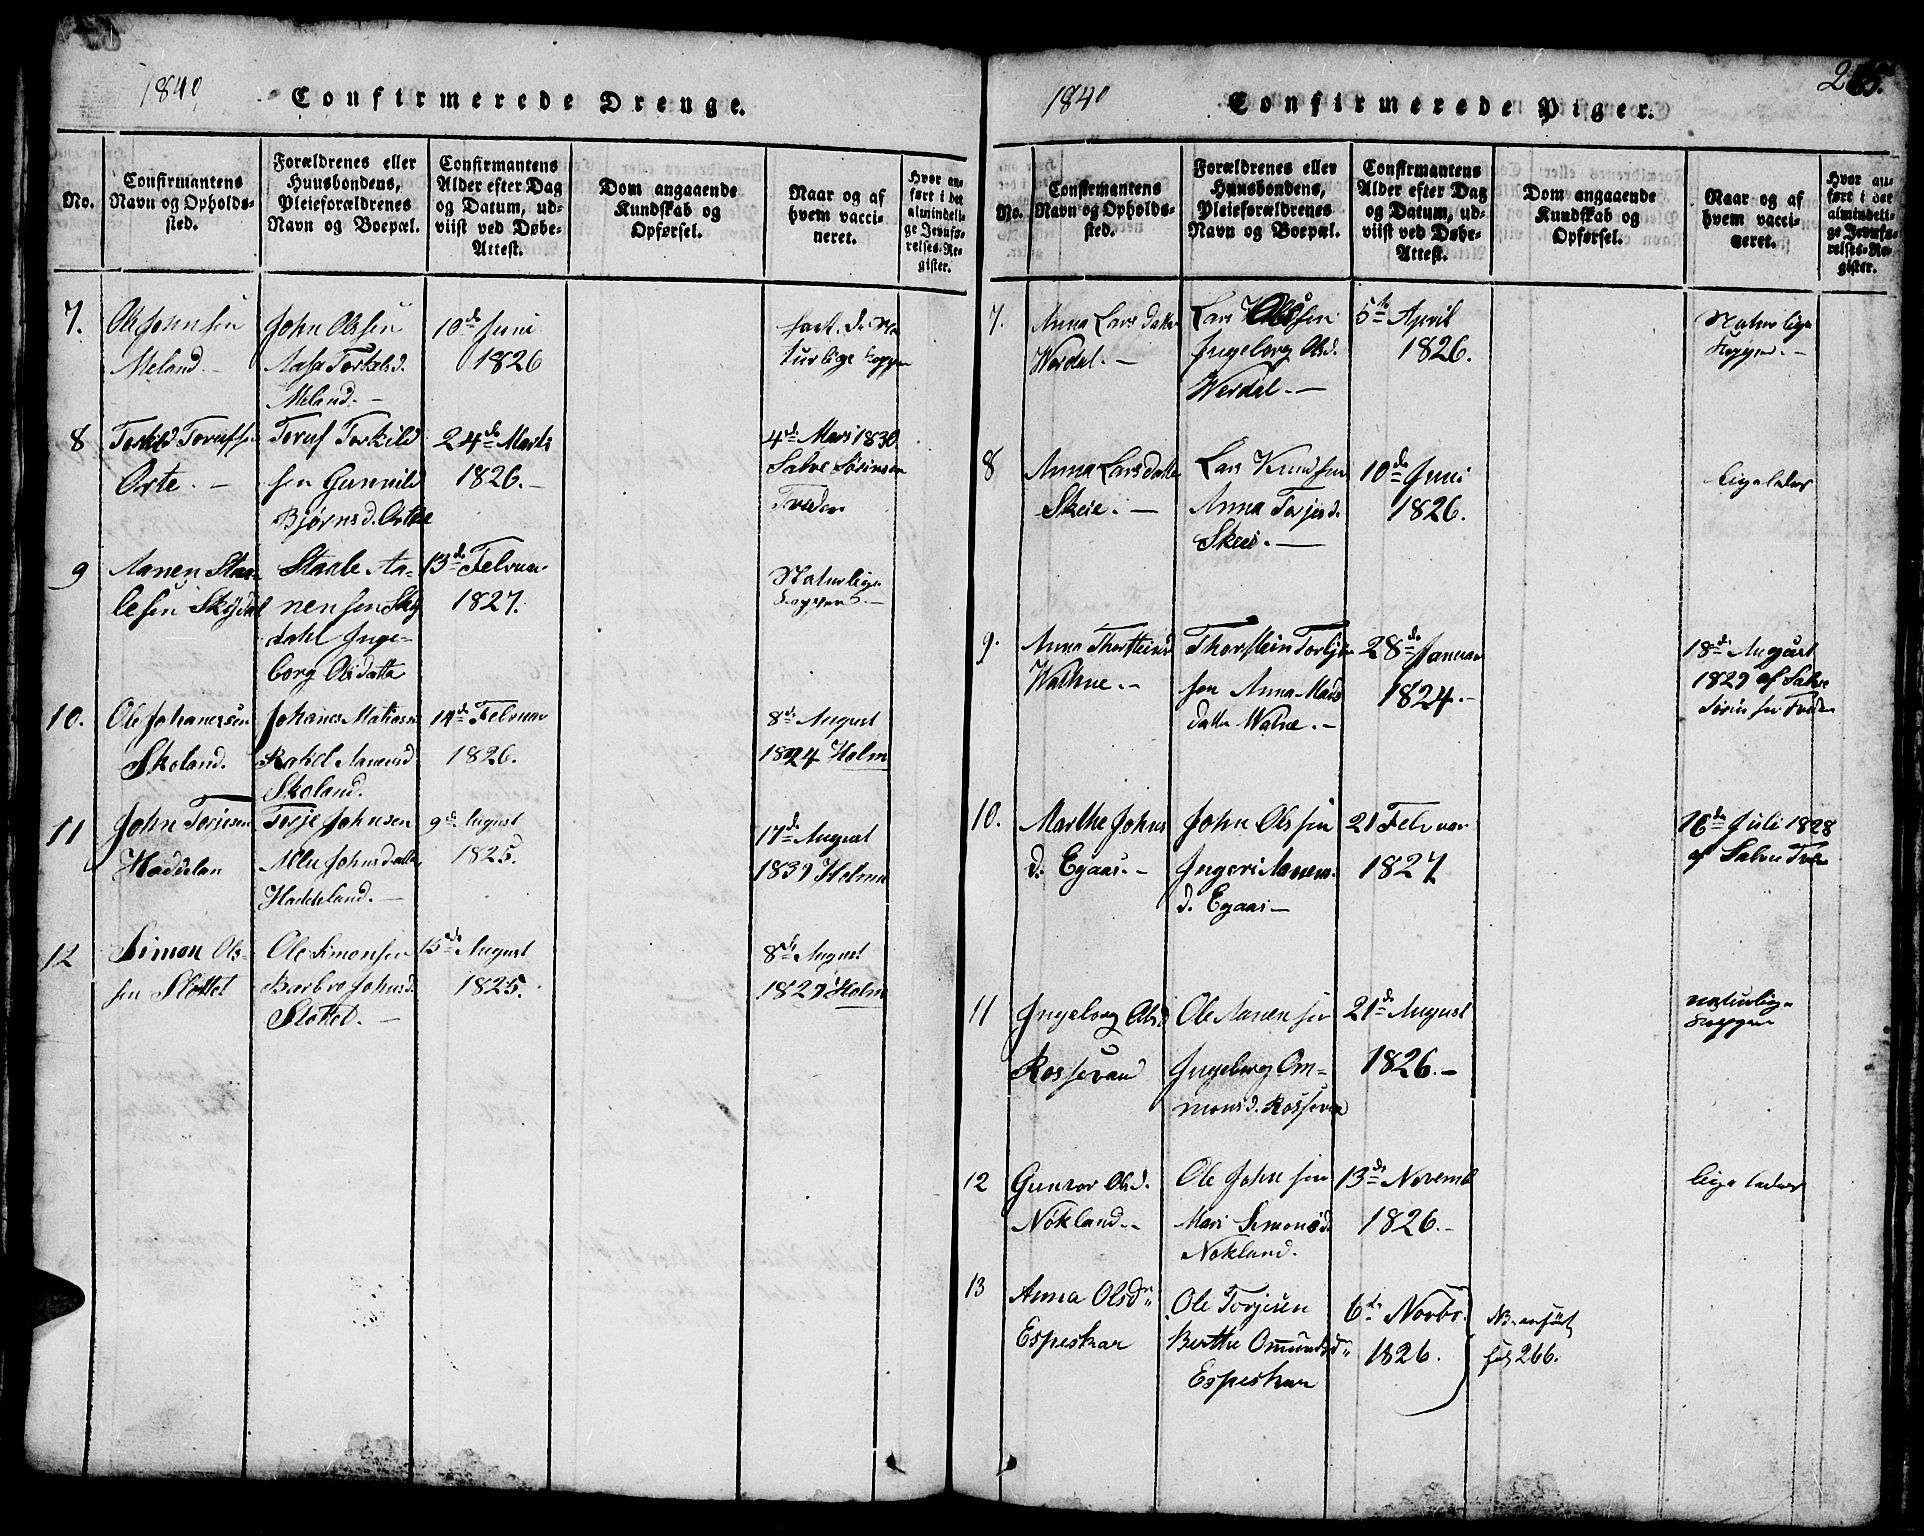 1840
Confirmerede Drenge.
No.
Confirmantens
Navn og Opholds-
sted.
Forældrenes eller
Huusbondens,
Pleieforældrenes
Navn og Boepæl.
Confirmantens
Alder efter Dag
og Datum, ud-
viist ved Døbe-
Attest.
Dom angaaende
Kundskab og
Opførsel.
Naar og af
hvem vacci-
neret.
Hvor an-
ført i det
almindeli-
ge Jevnfø-
relses-Re-
gister.
7.
Ole Johnsen
Meland. -
John Olssen
Aasa Torkelsd.
Meland. -
10de Juni
1826
havt de Na
turlige Kopper
8
Torkild Torufsen
Orte. -
Toruf Torkild
sen Gunnild
Bjørnsd. Orte
24de Marts
1826. -
4de Mars 1830
Salve Sørensen
Tveden
9
Aanen Staa-
lesen Skÿdal
Staale Aa-
nensen Skÿ
dahl Inge-
borg Olsdatta
13de Februar
1827.
Naturlige
Kopper. -
10.
Ole Johanessen
Skoland.
Johanes Mathisen
Rakel Aanensd
Skoland.
14de Februar
1826.
8de August
1824 Holm
11
John Torjesen
Haddelan
Torje Johnsen
Johnsdatter
Haddeland. -
9de August
1825.
17de August
1831 Holm
12
Simon Ols-
sen Slottet
Ole Simonsen
Barbro Johnsd.
Slottet. -
15de August
1825.
8de August
1829 Holm
1840
Confirmerede Piger.
No.
Confirmantens
Navn og Opholds-
sted.
Forældrenes eller
Huusbondens,
Pleieforældrenes
Navn og Boepæl.
Confirmantens
Alder efter Dag
og Datum, ud-
viist ved Døbe-
Attest.
Dom angaaende
Kundskab og
Opførsel.
Naar og af
hvem vacci-
neret.
Hvor an-
ført i det
almindeli-
ge Jevnfø-
relses-Re-
gister.
7.
Anna Larsdatter
Werdal. -
Lars Olssen
Ingeborg Olsd.
Werdal. -
5te April
1826.
Naturlige
Kopper. -
8
Anna Larsdatter
Skeie. -
Lars Knudsen
Anna Torjesd.
Skeie. -
10de Juni
1826.
Ligeledes
9.
Anna Thorsteinsd
Walhue. -
Thorstein Torbjørn
sen Anna Mads
datter Walue. -
28de Januar
1824. -
18de August
1829 af Salve
Sørensen Tveden
10.
Marthe Johns
d. Egaas. -
John Olssen
Ingeri Aanens
d. Egaas -
21 Februar
1827
16de Juli 1828
af Salve Tve
11
Ingeborg Olsd
Rossevand
Ole Aanensen
Ingeborg Om-
monsd. Rossevan
21de August
1826. -
naturlige
Kopper
12
Gunvor Olsd.
Nökland. -
Ole Johnsen
Mari Simonsd.
Nökland.
13de Novemb
1826. -
ligeledes
13
Anna Olsdr.
Espeskar
Ole Torjesen
Berthe Omundsdr.
Espeskar
6te Novbr.
1826.
NB. anført
fol 266.